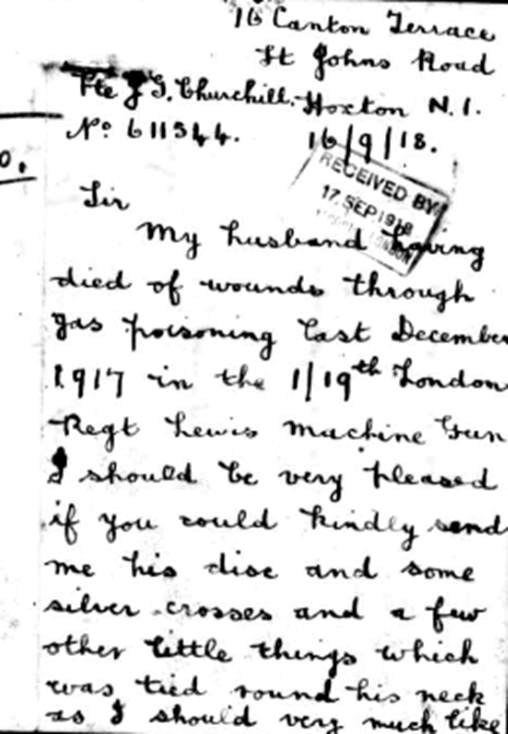 16 Canton Terrace
St Johns Road
Pte J G. Churchill. Hoxton N. 1.
No 611544. 16/9/18.
RECEIVED BY
17 SEP 1918
LONDON
0.
Sir
My husband having
died of wounds through
gas poisoning last December
1917 in the 1/19th London
Regt Lewis Machine Gun
I should be very pleased
if you could kindly send
me his disc and some
silver crosses and a few
other little things which
was tied round his neck
as I should very much like